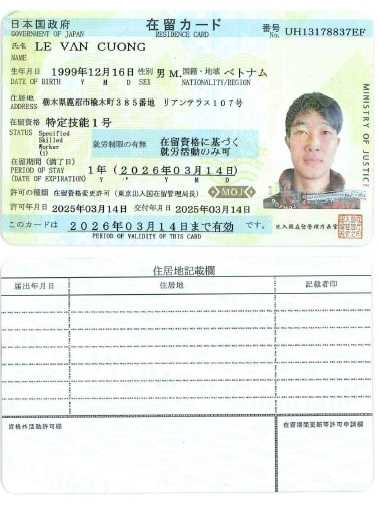 日本国政府 在留カード 番号 UH13178837EF
GOVERNMENT OF JAPAN RESIDENCE CARD No.
氏名 LE VAN CUONG
NAME
生年月日 1999年12月16日 性別 男 M. 国籍・地域 ベトナム
DATE OF BIRTH Y M D SEX NATIONALITY/REGION
住居地 栃木県鹿沼市楡木町385番地 リアンテラス107号
ADDRESS
在留資格 特定技能1号
STATUS Specified
Skilled
Worker
(i)
就労制限の有無 在留資格に基づく
就労活動のみ可
在留期間(満了日)
PERIOD OF STAY 1年(2026年03月14日)
(DATE OF EXPIRATION) Y M D
許可の種類 在留資格変更許可(東京出入国在留管理局長) MOJ
許可年月日 2025年03月14日 交付年月日 2025年03月14日
このカードは 2026年03月14日まで有効 です。
PERIOD OF VALIDITY OF THIS CARD
MINISTRY OF JUSTICE
住居地記載欄
届出年月日 住居地 記載者印
資格外活動許可欄 在留期間更新等許可申請欄